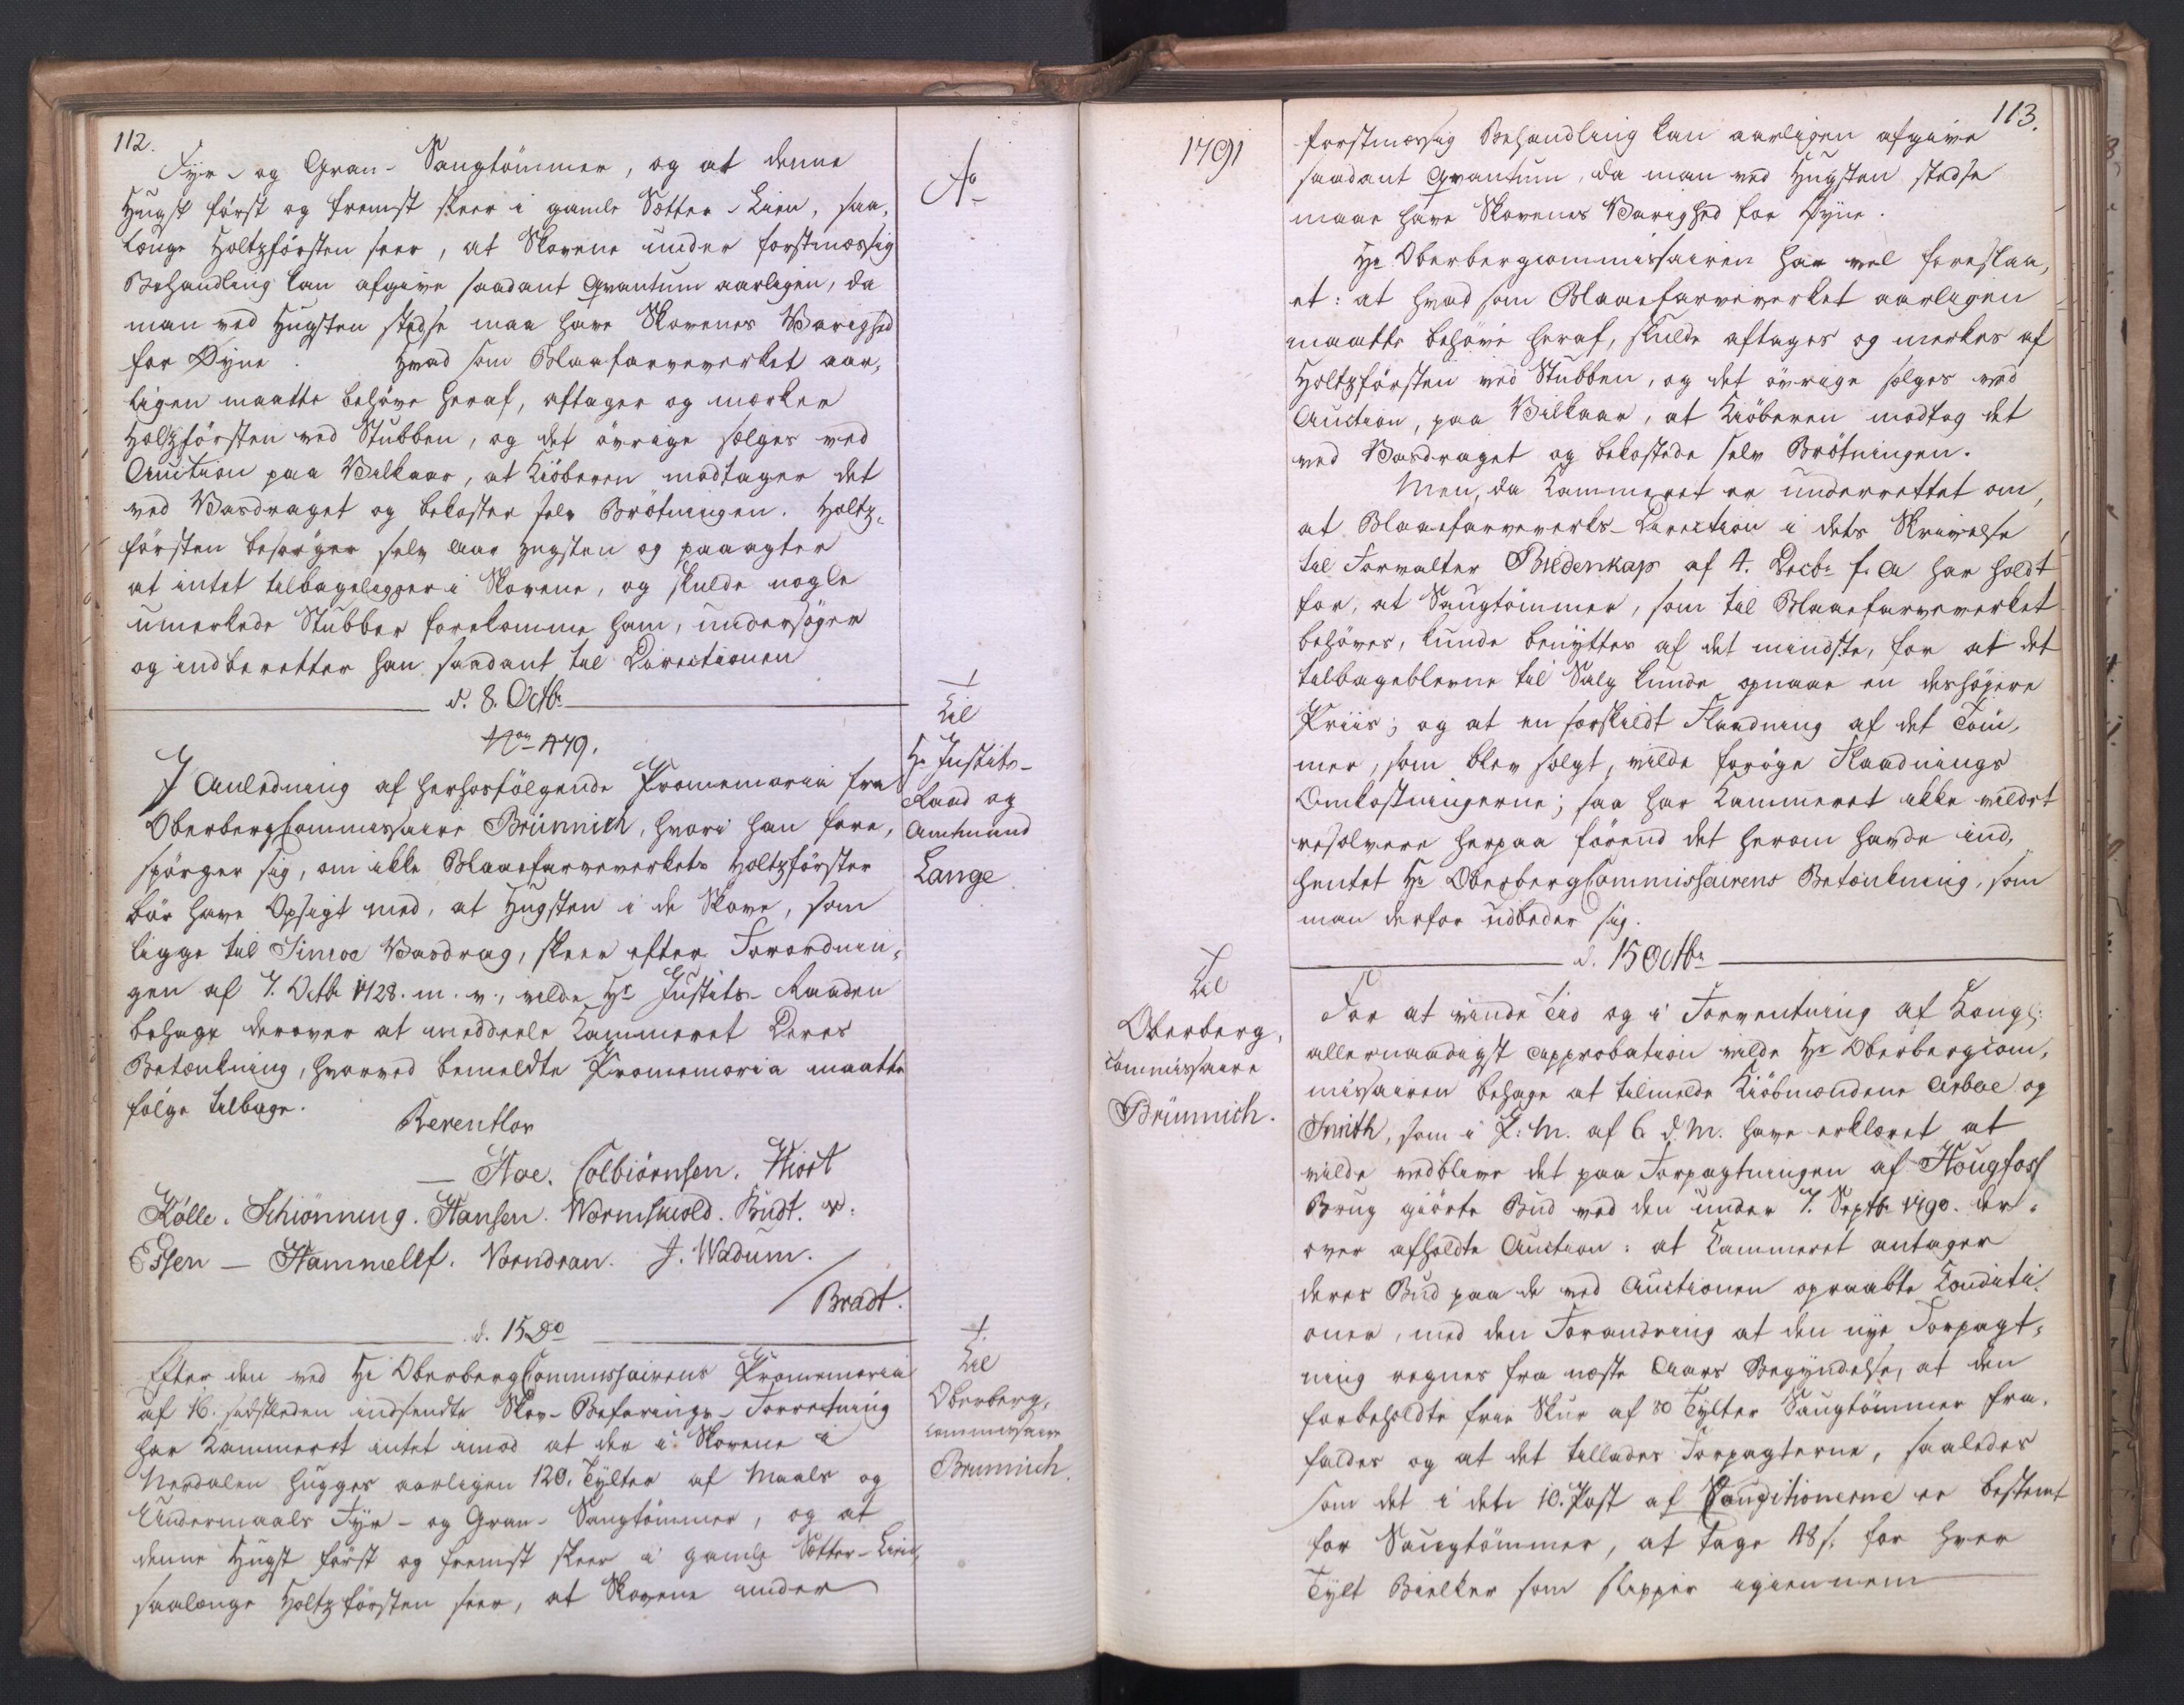 112.
Fyr- og Gran-Saugtömmer, og at denne
Hugst först og fremst skeer i gamle Sætter-Lien, saa,
længe Holtzförsten seer, at Skovene under forstmæssig
Behandling kan afgive saadant Qvantum aarligen, da
man ved Hugsten stedse maa have Skovenes Varighed
for Øyne. Hvad som Blaafarveverket aar,
ligen maatte behöve heraf, aftager og mærker
Holtzförsten ved Stubben, og det övrige sælges ved
Auction paa Vilkaar, at Kiöberen modtager det
ved Vasdraget og bekoster selv Brötningen. Holtz,
försten besörger selv Aar Hugsten og paaagter
at intet tilbageligger i Skovene, og skulde nogle
umerkede Stubber forekomme ham, undersöger
og indberetter han saadant til Directionen
d. 8. Octbr
Nor 479.
I Anledning af herhosfölgende Promemoria fra
OberbergCommissaire Brünnich, hvori han fore,
spörger sig, om ikke Blaaefarveverkets Holtzförster
bör have Opsigt med, at Hugsten i de Skove, som
ligge til Simoe Vasdrag, skeer efter Forordnin,
gen af 7. Octbr 1728. m. v., vilde Hr Justits-Raaden
behage derover at meddeele Kammeret Deres
Betænkning, hvorved bemeldte Promemoria maatte
fölge tilbage.
Reventlov
— Hoe. Colbiörnsen. Hiort
Kölle. Schiönning. Hansen. Wormskiold. Budt. v.
Essen — Hammeleff. Vorndran. J. Wadum.
/ Bradt.
d. 15 Do
Efter den ved Hr OberbergCommissairens Promemoria
af 16. sidstleden indsendte Skov-Befarings-Forretning
har Kammeret intet imod at der i Skovene i
Nerdalen hugges aarligen 120. Tylter af Maals og
Undermaals Fyr- og Gran-Saugtömmer, og at
denne Hugst först og fremst skeer i gamle Sætter-Lien,
saalænge Holtzförsten seer, at Skovene under
Ao
Til
Hr Justits-
Raad og
Amtmand
Lange
Til
Oberberg,
commissaire
Brünnich.
1791
113.
forstmæssig Behandling kan aarligen afgive
saadant Qvantum, da man ved Hugsten stedse
maae have Skovenes Varighed for Øyne.
Hr Oberbergcommissairen har vel foreslaa,
et: at hvad som Blaaefarveverket aarligen
maatte behöve heraf, skulde aftages og merkes af
Holtzförsten ved Stubben, og det övrige sælges ved
Auction, paa Vilkaar, at Kiöberen modtog det
ved Vasdraget og bekostede selv Brötningen.
Men, da Kammeret er underrettet om,
at Blaaefarveverks-Direction i dets Skrivelse
til Forvalter Bildenkap af 4. Decbr f. A har holdt
for, at Saugtömmer, som til Blaaefarveverket
behöves, kunde benyttes af det mindste, for at det
tilbageblevne til Salg kunde opnaae en deshöjere
Priis; og at en sorskildt Flaadning af det Töm,
mer, som blev solgt, vilde foröge Flaadnings
Omkostningerne; saa har Kammeret ikke vildet
resolvere herpaa förend det herom havde ind,
hentet Hr OberbergCommissairens Betænkning, som
man derfor udbeder sig.
d. 15 Octbr
For at vinde Tid og i Forventning af Kongl:
allernaadigst Approbation vilde Hr Oberbergcom,
missairen behage at tilmelde Kiöbmændene Arboe og
Smith, som i P. M. af 6. d. M. have erklæret at
vilde vedblive det paa Forpagtningen af Hougfoss
Brug giörte Bud ved den under 7. Septbr 1790. der,
over afholdte Auction: at Kammeret antager
deres Bud paa de ved Auctionen opraabte Conditi,
oner, med den Forandring at den nye Forpagt,
ning regnes fra næste Aars Begyndelse, at den
forbeholdte frie Skur af 80 Tylter Saugtömmer fra,
falder og at det tillades Forpagterne, saaledes
som det i dets 10. Post af Conditionerne er bestemt
for Saugtömmer, at tage 48 s. for hver
Tylt Bielker som slipper igiennem
Til
Oberberg,
commissaire
Brünnich.